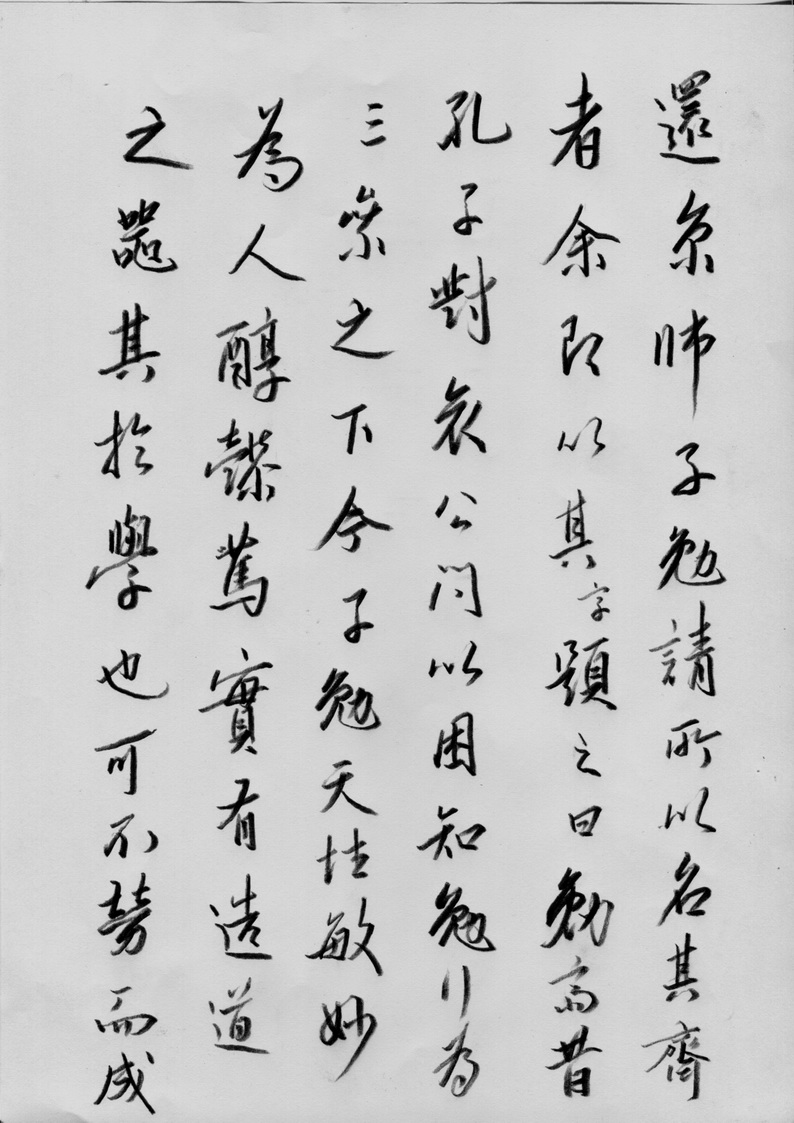 還京師子勉請所以名其齊
者余即以其字題之曰勉齋昔
孔子對哀公問以困知勉行為
三桼之下今子勉天性敏妙
為人醇慤篤實有造道
之器其於學也可不勞而成